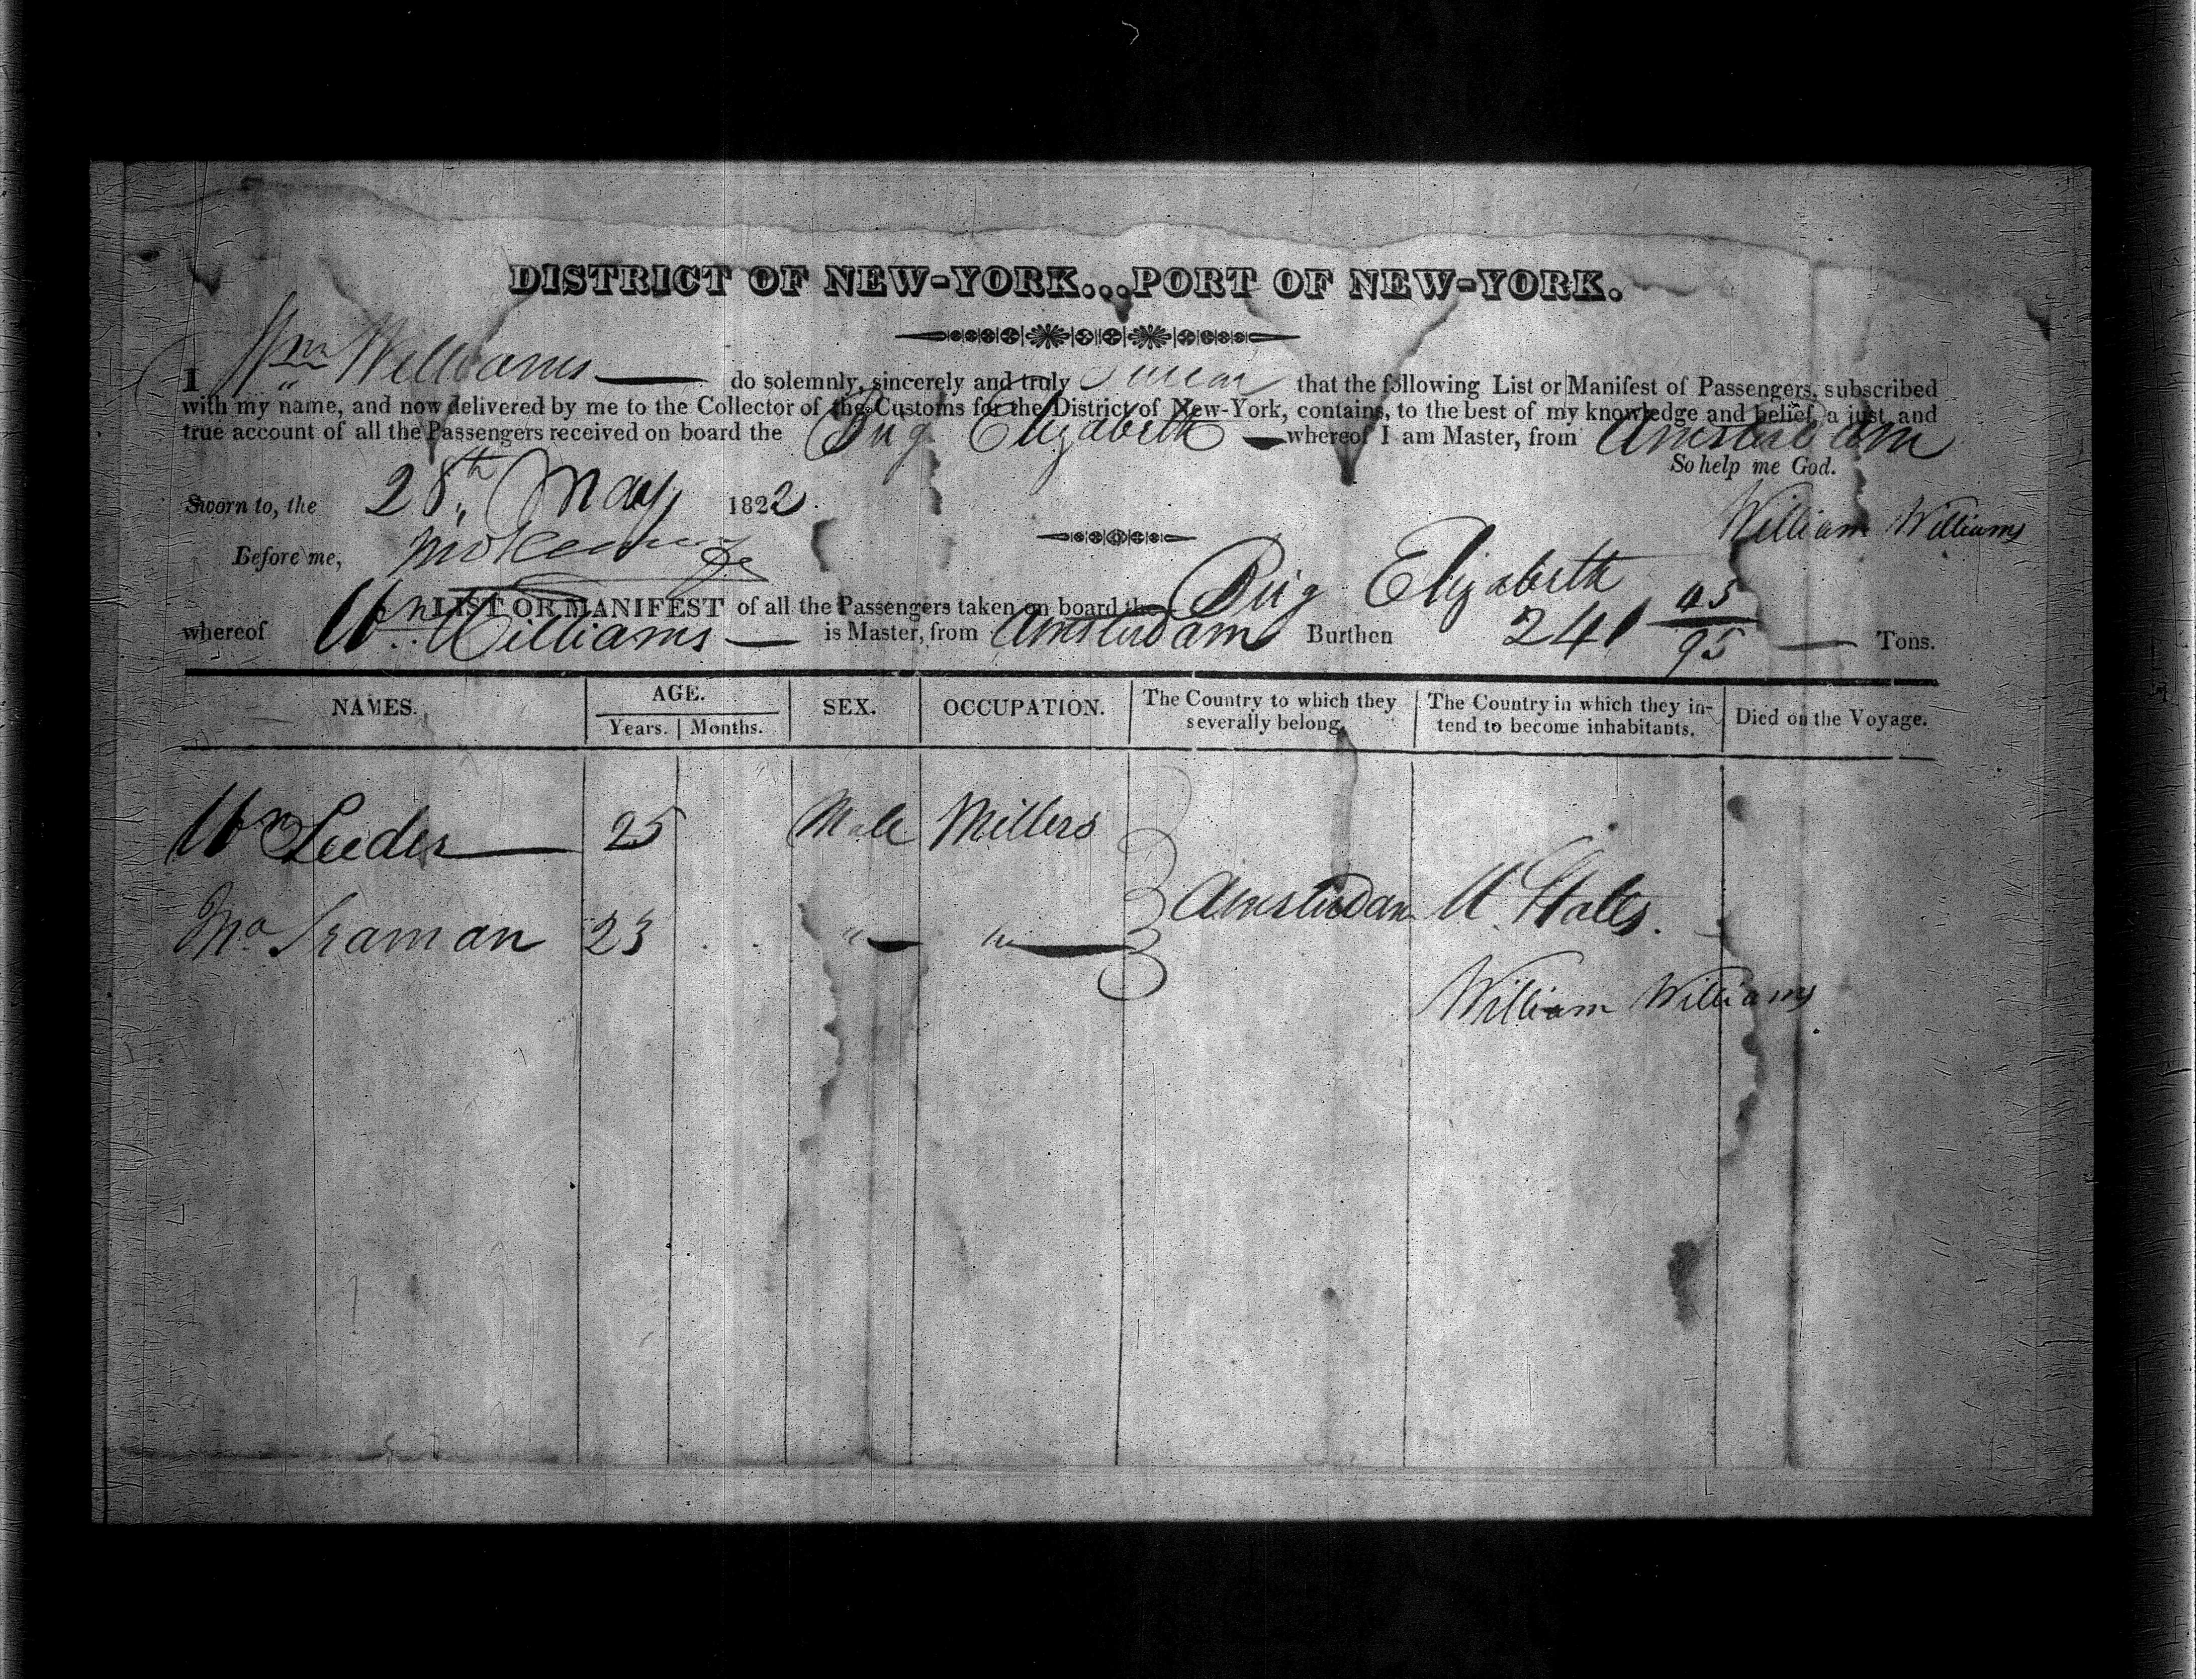 DISTRICT OF NEW-YORK...PORT OF NEW-YORK.
I Wm Williams do solemnly, sincerely and truly swear that the following List or Manifest of Passengers, subscribed
with my name, and now delivered by me to the Collector of the Customs for the District of New-York, contains, to the best of my knowledge and belief, a just and
true account of all the Passengers received on board the Brig Elizabeth whereof I am Master, from Amsterdam
So help me God.
Sworn to, the 28th May 1822.
William Williams
Before me,
LIST OR MANIFEST of all the Passengers taken on board the Brig Elizabeth
whereof Wm Williams is Master, from Amsterdam Burthen 241 45/95 Tons.
NAMES. AGE. SEX. OCCUPATION. The Country to which they severally belong. The Country in which they intend to become inhabitants. Died on the Voyage.
Years. Months.
Wm Leeder 25 Male Millers
Amsterdam U. States.
23 " "
William Williams